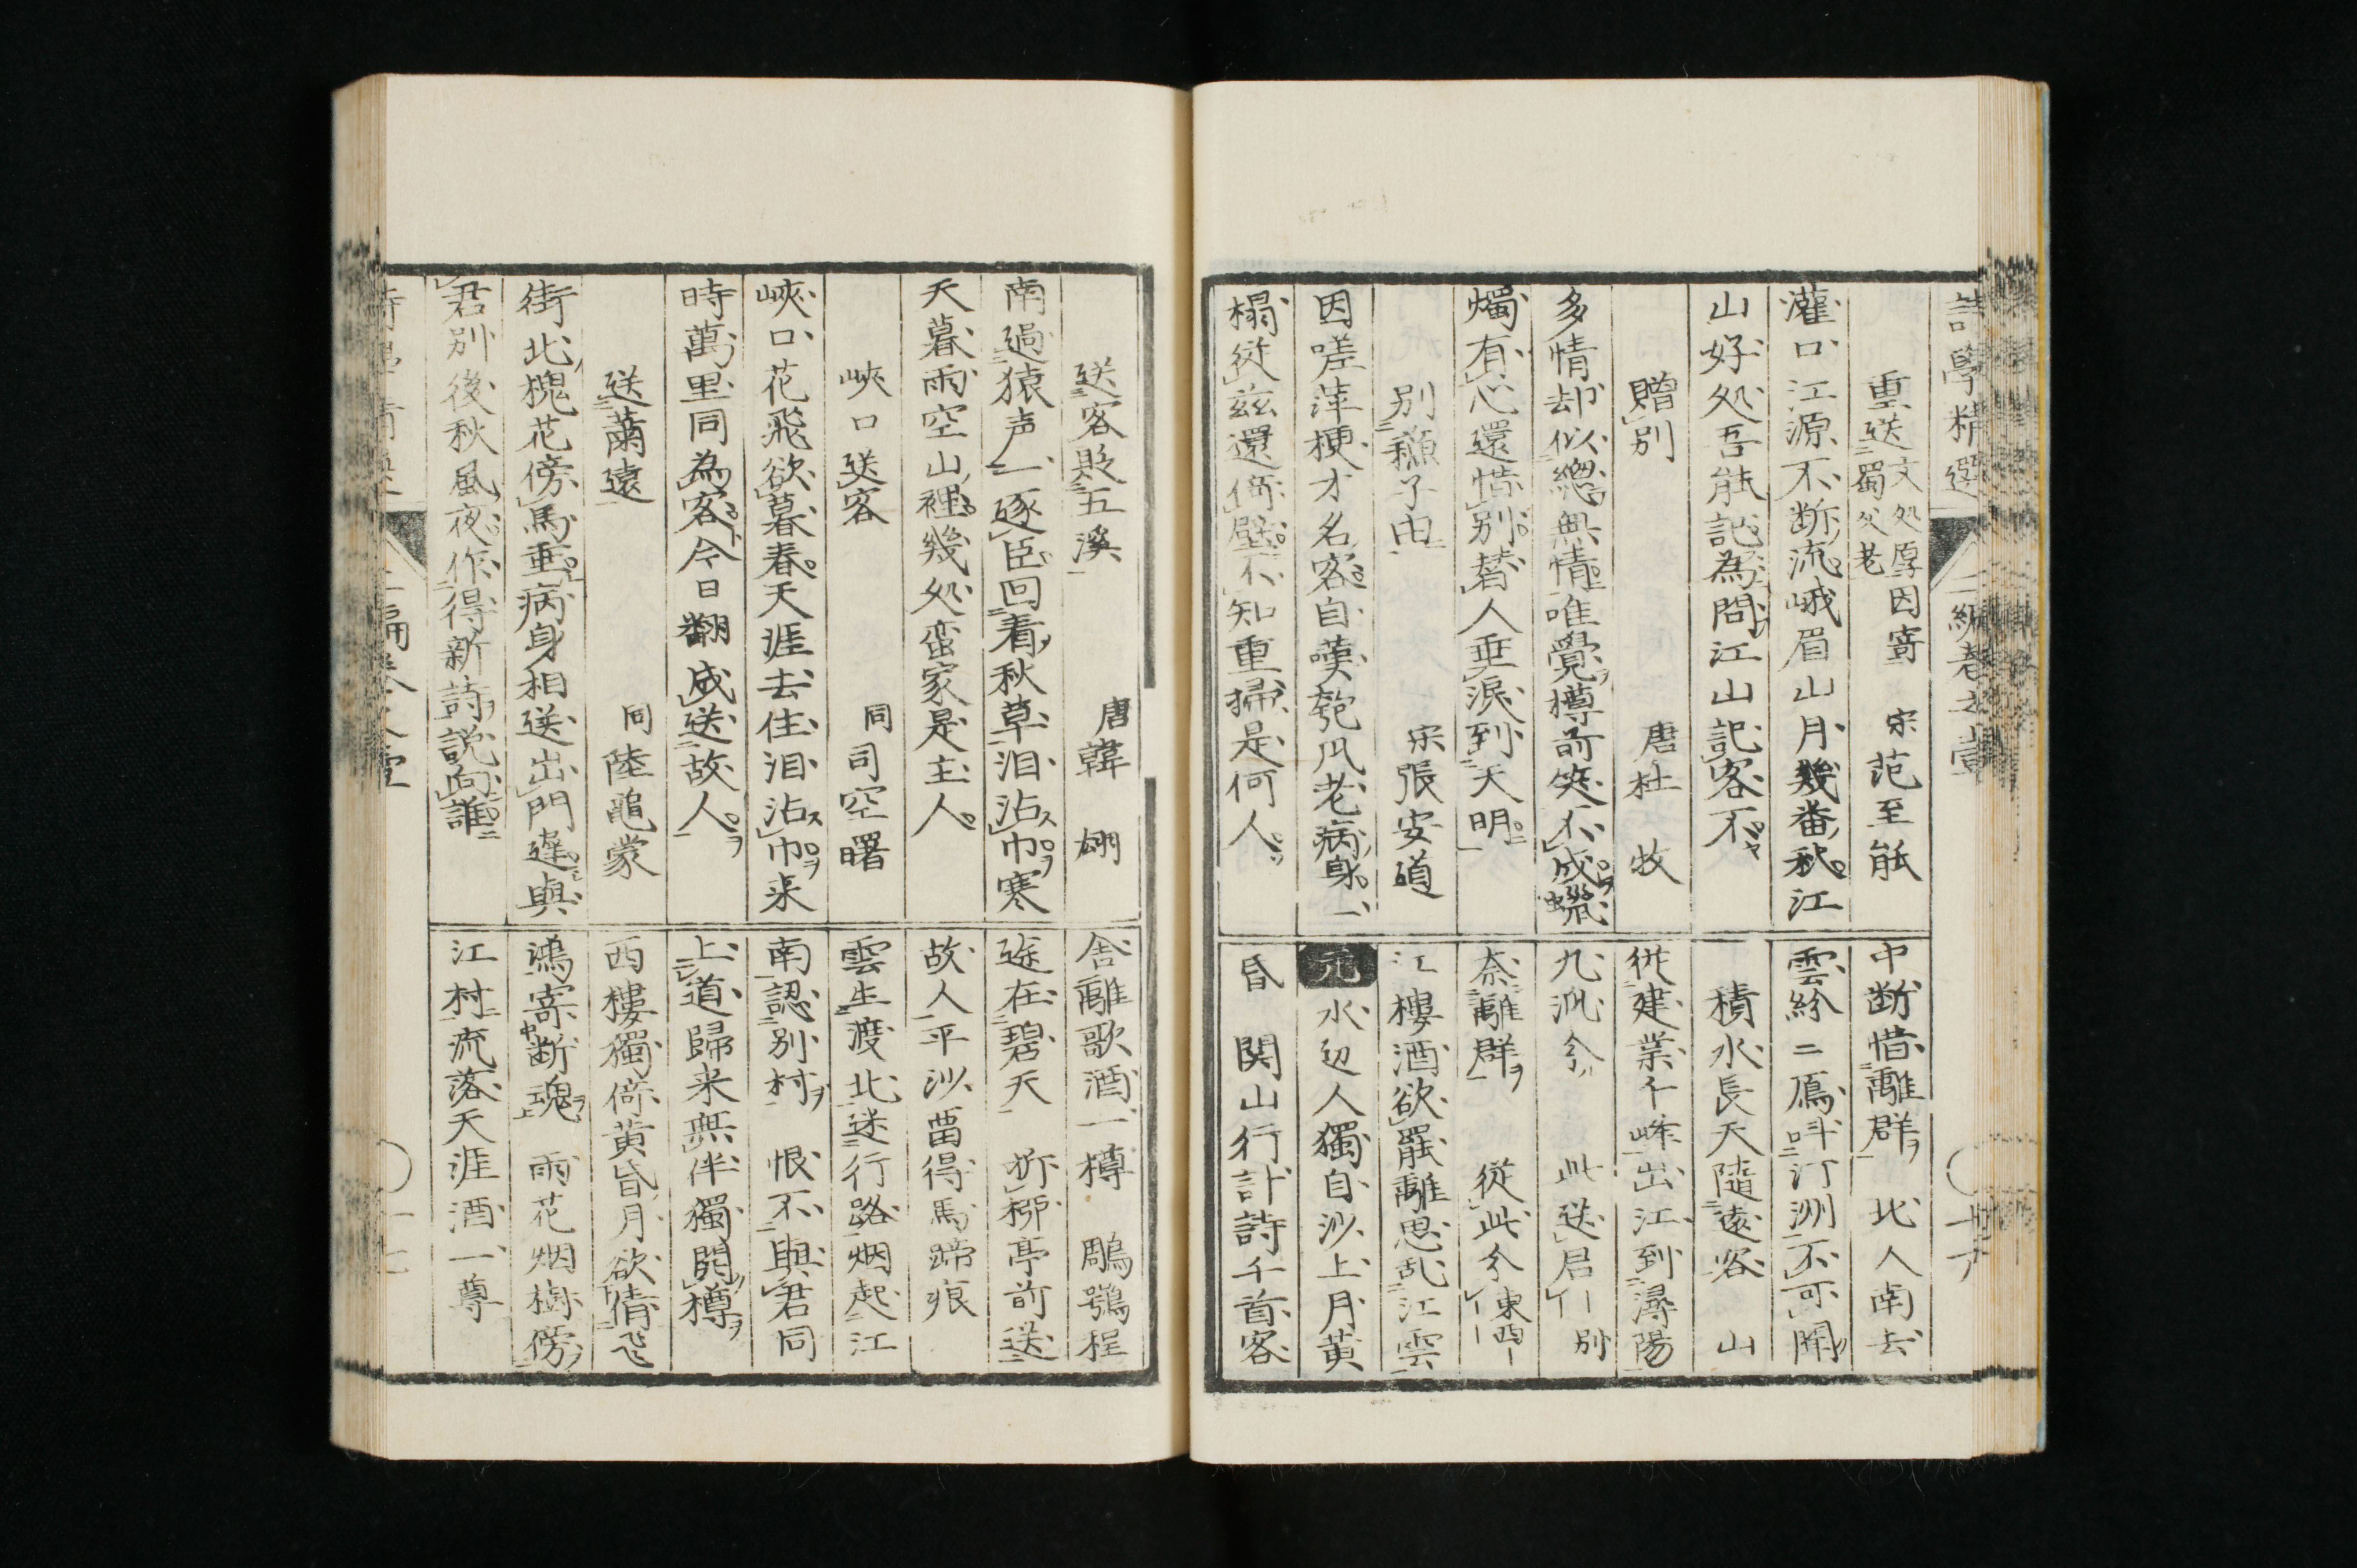 詩學精選 二編卷之壹
重送蜀父老 文処厚因寄 宋 范至能
灌口江源不断流峨眉山月幾番秋江
山好処吾能記為問江山記客不
贈別 唐 杜 牧
多情却似總無情唯覺樽前笑不成蠟
燭有心還惜別替人垂涙到天明
別蘓子由 宋 張安道
因嗟萍梗才名客自嘆匏瓜老病身一
榻從茲還倚壁不知重掃是何人
中断惜離群 北人南去
雲紛二鴈叫汀洲不可聞
積水長天隨遠客 山
従建業千峰出江到潯陽
九派分 此送君 別
奈離群 從此分 東西
江樓酒欲罷離思乱江雲
元 水辺人獨自沙上月黄
昏 関山行計詩千首客
送客貶五溪 唐 韓 翃
南過猿声一逐臣回看秋草泪沾巾寒
天暮雨空山裡幾処蛮家是主人
峽口送客 同 司空曙
峽口花飛欲暮春天涯去住泪沾巾来
時萬里同為客今日翻成送故人
送蘭遠 同 陸龜蒙
街北槐花傍馬垂病身相送出門遲與
君別後秋風夜作得新詩説向誰
舎離歌酒一樽 鵰鶚程
途在碧天 折桺亭前送
故人平沙畱得馬蹄痕
雲生渡北迷行路烟起江
南認別村 恨不與君同
上道歸来無伴獨開樽
西樓獨倚黄昏月欲倩飛
鴻寄断魂 雨花烟樹傍
江村流落天涯酒一尊